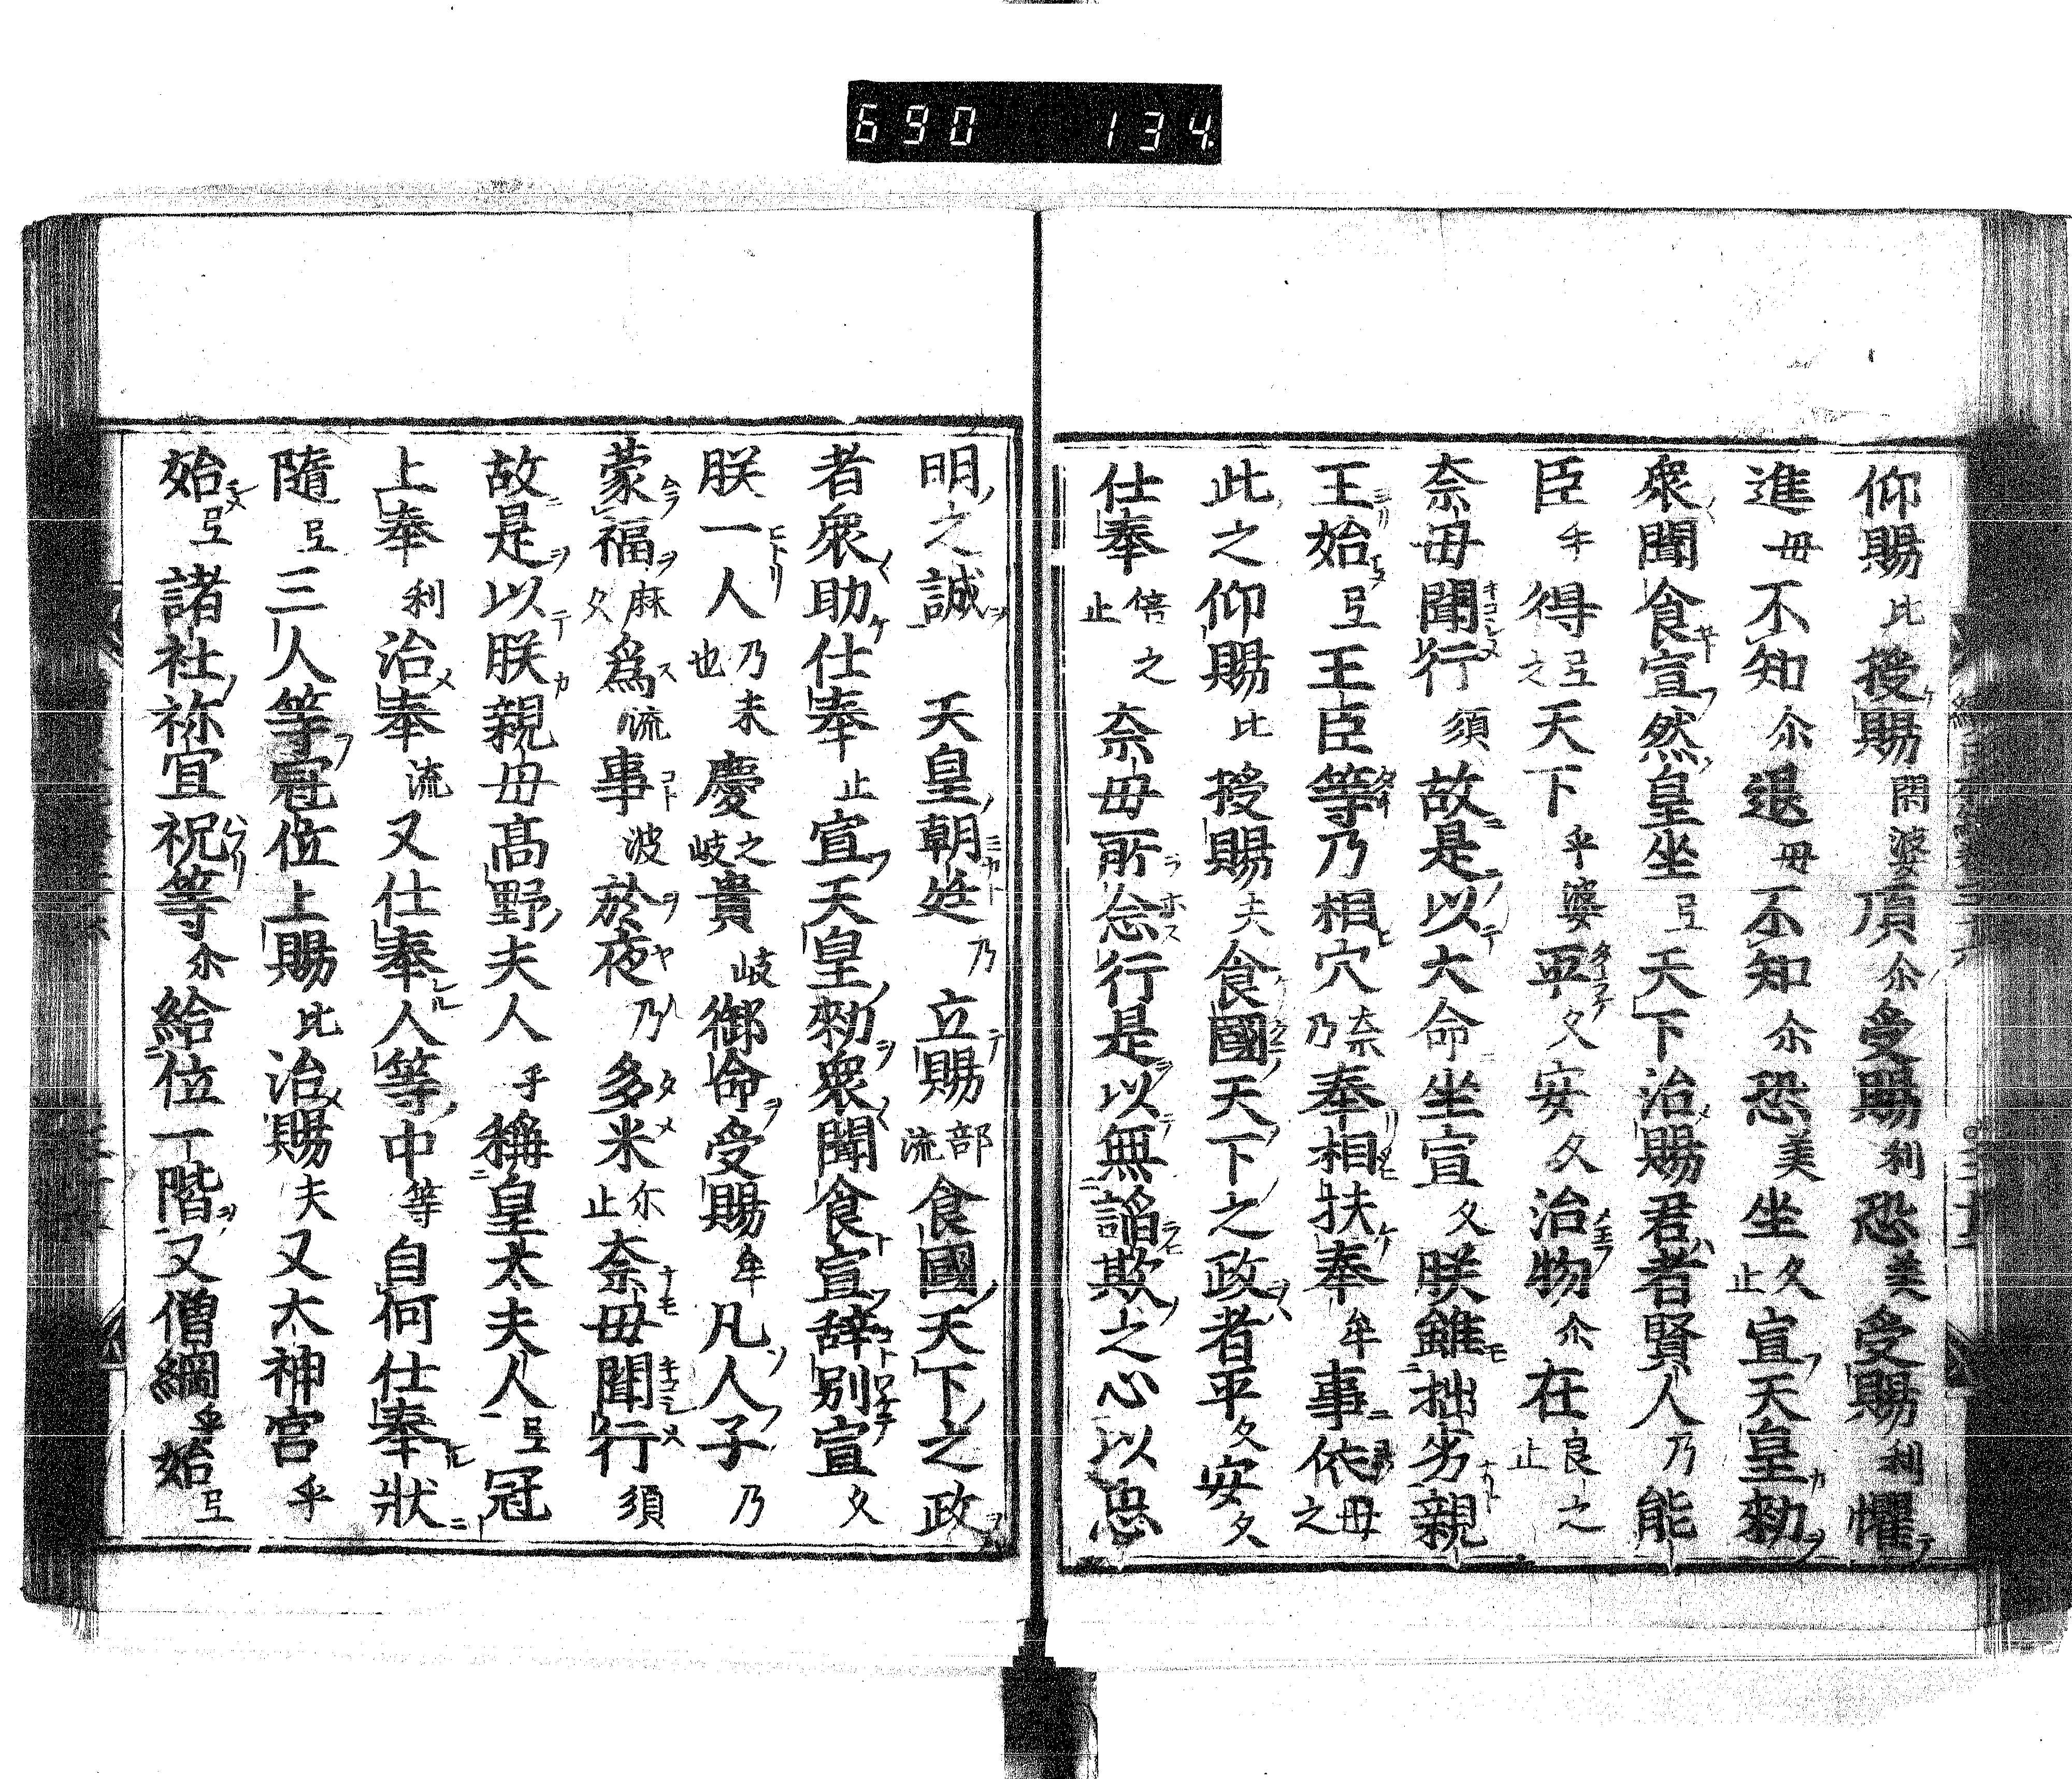 690 134
仰賜比授賜閇婆頂尓受賜利恐美受賜利懼
進毋不知尓退毋不知尓恐美坐久止宣天皇勅
衆聞食宣然皇坐弖天下治賜君者賢人乃能
臣乎得弖之天下乎婆平久安久治物尓在良之止
奈毋聞行須故是以大命坐宣久朕雖拙劣親
王始弖王臣等乃相穴奈乃奉相扶奉牟事依毋之
此之仰賜比授賜夫食國天下之政者平久安久
仕奉倍之止之奈毋所念行是以無諂欺之心以忠
明之誠天皇朝廷乃立賜部流食國天下之政
者衆助仕奉止宣天皇勅衆聞食宣辞別宣久
朕一人乃也未慶之岐貴岐御命受賜牟凡人子乃
蒙福麻久爲流事波於夜乃多米尓止奈毋聞行須
故是以朕親毋高野夫人乎稱皇太夫人弖冠
上奉利治奉流又仕奉人等中等自何仕奉狀
隨弖三人等冠位上賜比治賜夫又大神宮乎
始弖諸社祢宜祝等尓給位一階又僧綱乎始弖